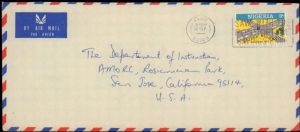 BY AIR MAIL
PAR AVION
NIGERIA
The Department of Instruction,
AMORC, Rosicrucian Park,
San Jose, California 95114,
U.S.A.